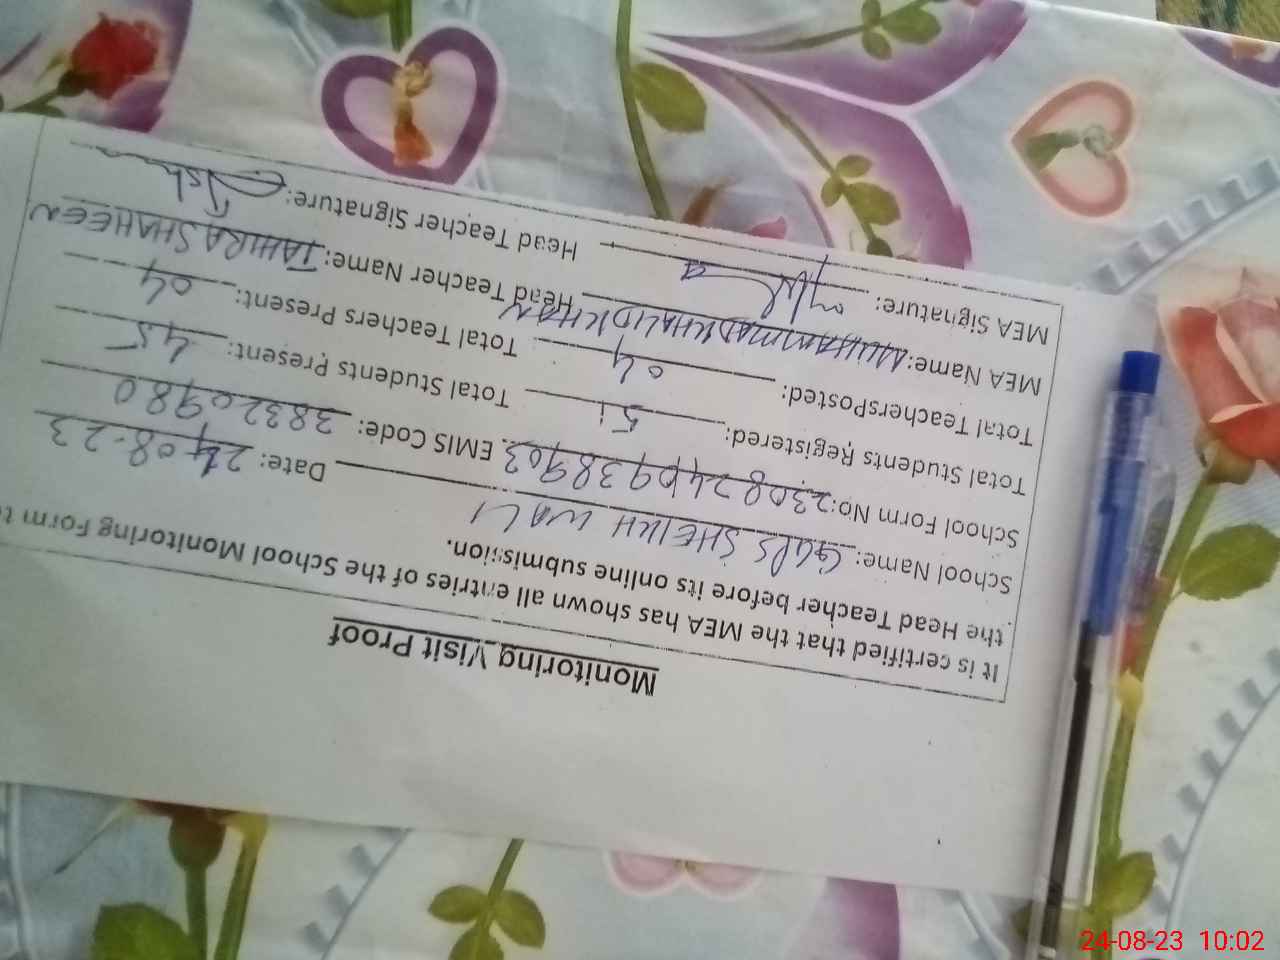 Monitoring Visit Proof
It is certified that the MEA has shown all entries of the School Monitoring Form to
the Head Teacher before its online submission.
School Name: GGPS SHEIKH WALI Date: 24-08-23
School Form No: 2308240938903 EMIS Code: 38320980
Total Students Registered: 51 Total Students Present: 45
Total TeachersPosted: 04 Total Teachers Present: 04
MEA Name: MUHAMMAD KHALID KHAN Head Teacher Name: TAHIRA SHAHEEN
MEA Signature: Head Teacher Signature:
24-08-23 10:02